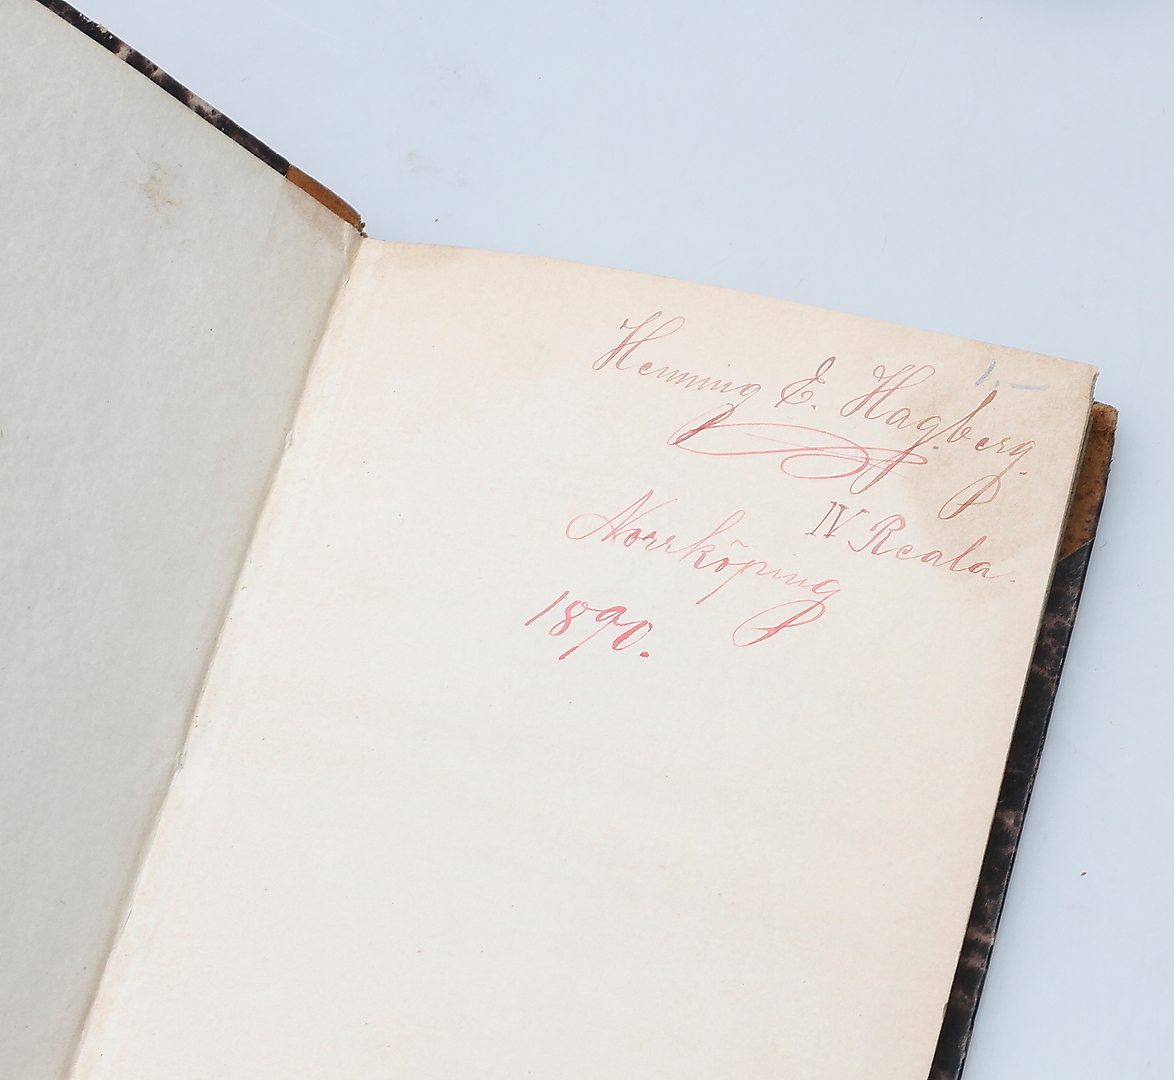 1.-
Henning E. Hagberg.
IV Reala.
Norrköping
1890.